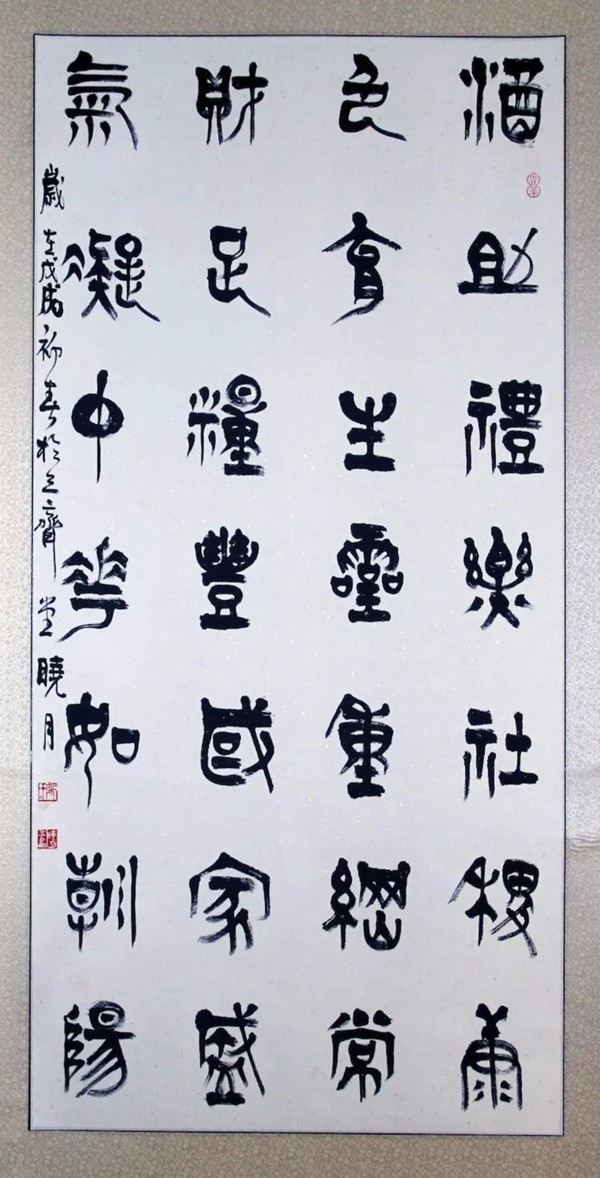 酒助禮樂社稷康
色育生靈重綱常
財足糧豐國家盛
氣凝中華如朝陽
歲在戊戌初春於三齊堂 曉月